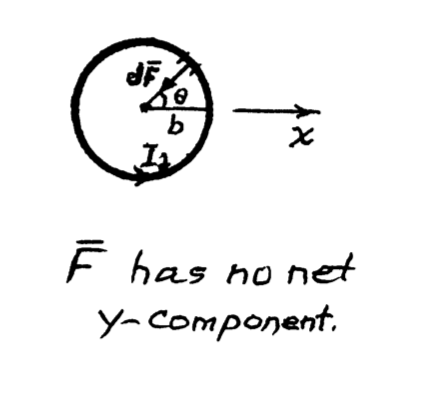 dF̄
θ
b
I₁
x
F̄ has no net
y-component.